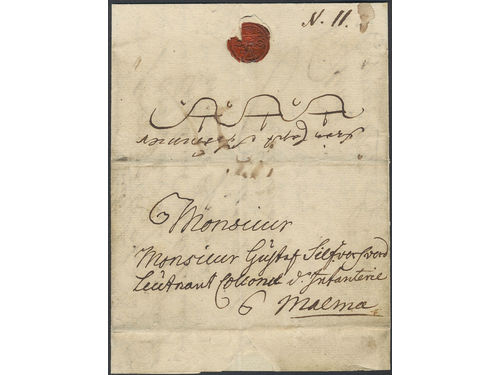 N. 11.
Monsieur
Monsieur Gustaf Silfversverd
Leutnant Colonel d'Infanterie
Malma